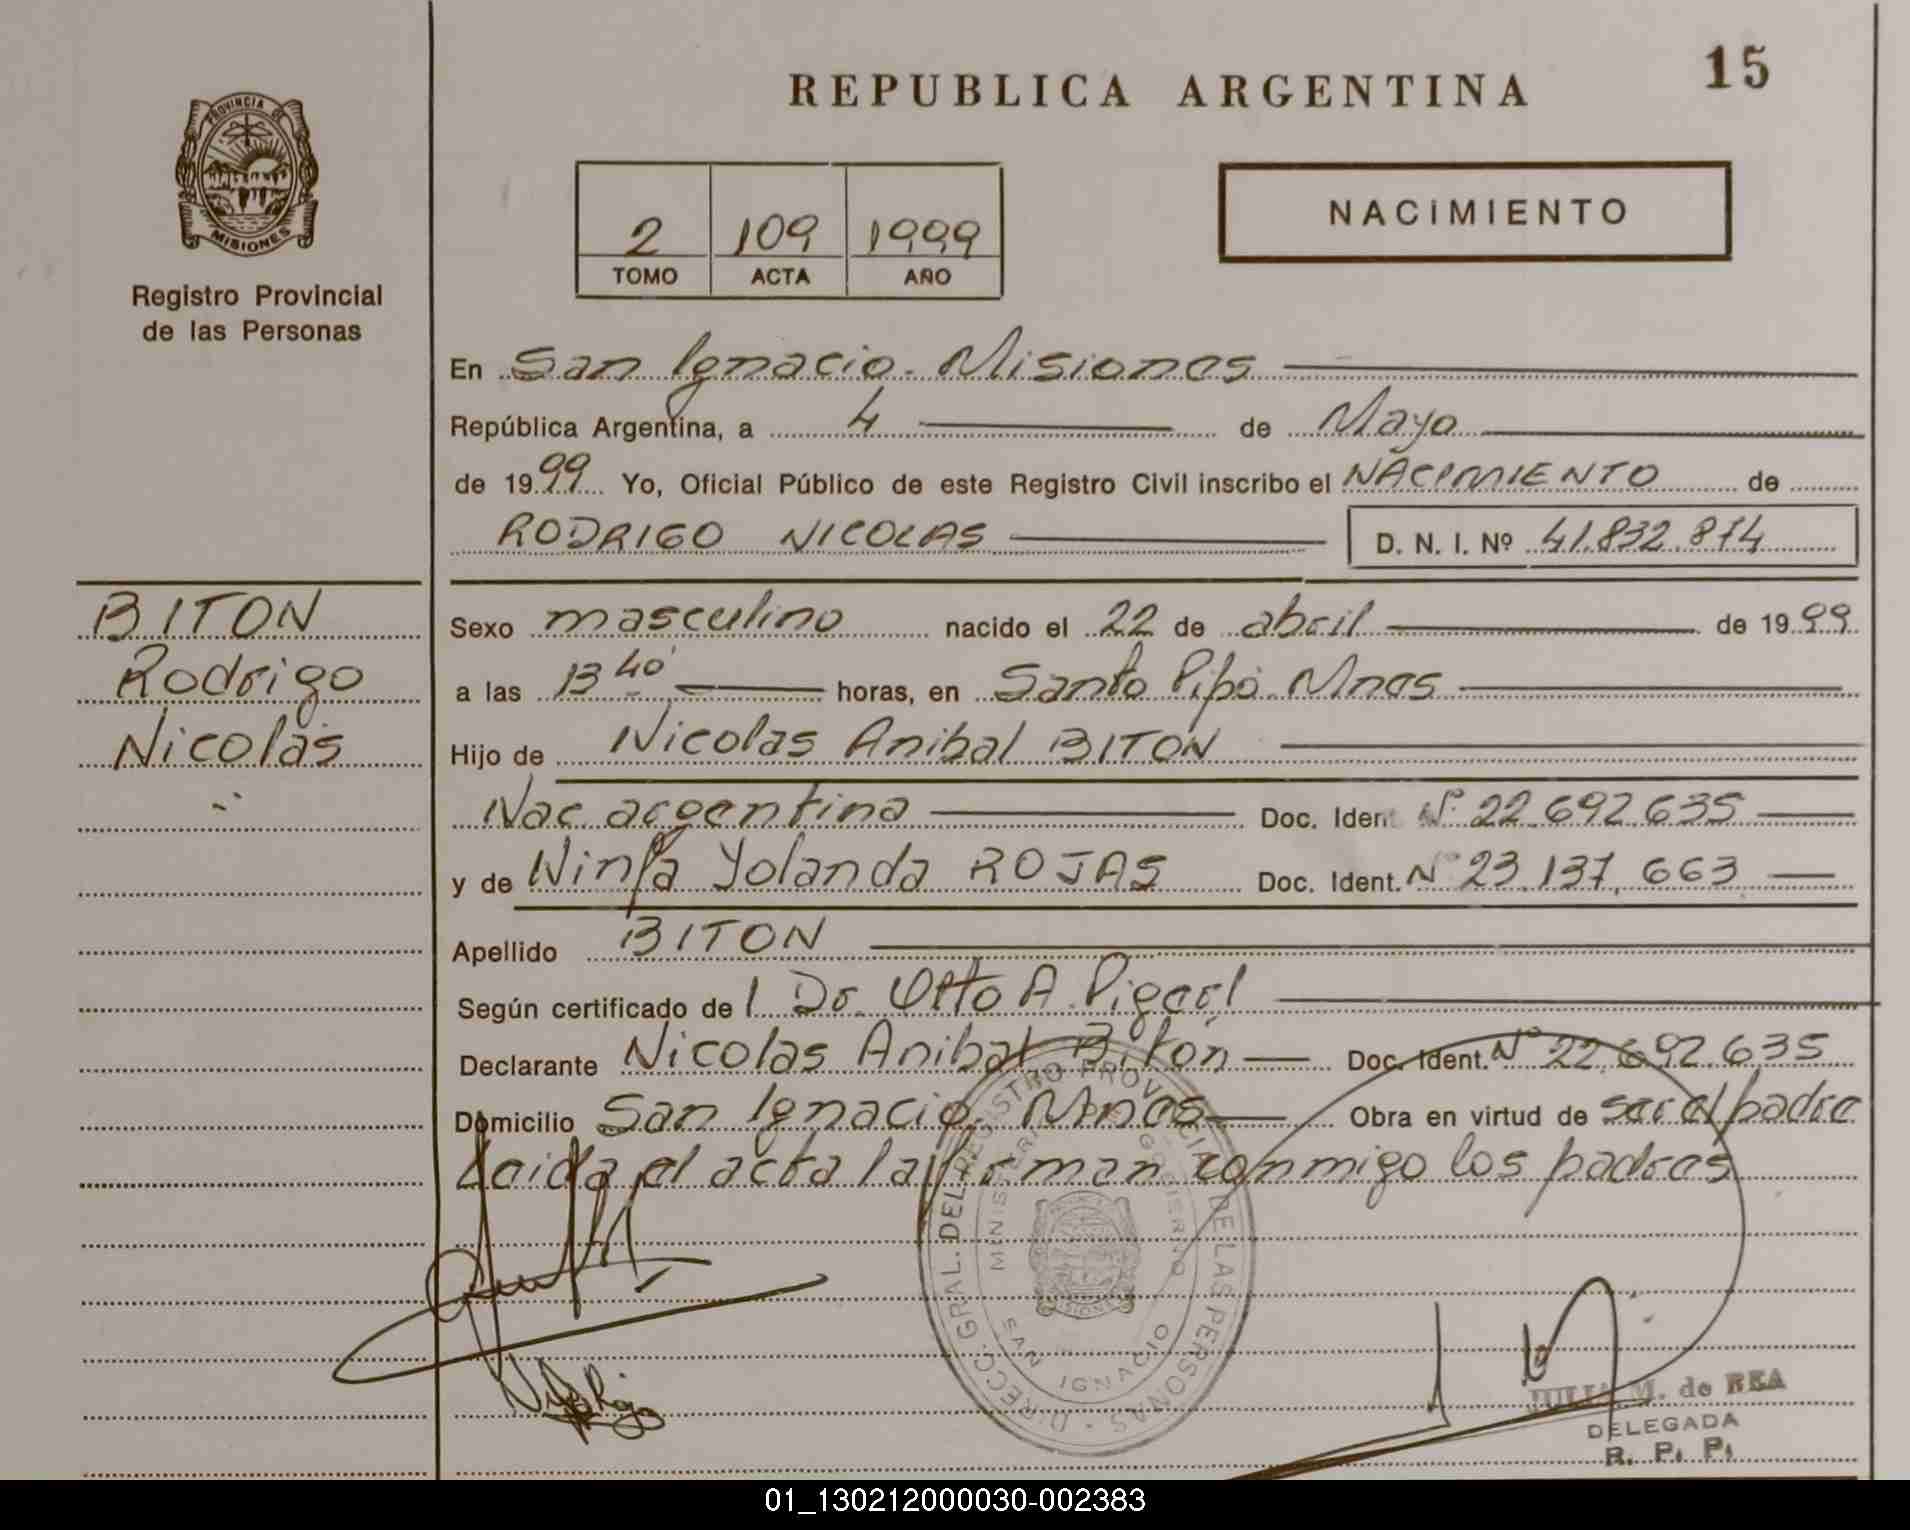 15
REPUBLICA ARGENTINA
PROVINCIA DE
MISIONES
Registro Provincial
de las Personas
2 109 1999
TOMO ACTA AÑO
NACIMIENTO
En San Ignacio. Misiones
República Argentina, a 4 de Mayo
de 1999 Yo, Oficial Público de este Registro Civil inscribo el NACIMIENTO de
RODRIGO NICOLAS D. N. I. Nº 41.832.874
BITON
Rodrigo
Nicolás
Sexo masculino nacido el 22 de abril de 1999
a las 13 40' horas, en Santo Pipó. Mnes
Hijo de Nicolas Anibal BITON
Nac. argentina Doc. Ident. Nº 22.692.635
y de Ninfa Yolanda ROJAS Doc. Ident. Nº 23.137.663
Apellido BITON
Según certificado de l Dr. Otto A.
Declarante Nicolas Anibal Biton Doc. Ident. Nº 22.692.635
Domicilio San Ignacio. Mnes Obra en virtud de ser el padre
Leida el acta la firman conmigo los padres
DIRECC. GRAL. DEL REGISTRO PROVINCIAL DE LAS PERSONAS
MINISTERIO GOBIERNO
MISIONES
SAN IGNACIO
JULIA M. de REA
DELEGADA
R. P. P.
01_130212000030-002383